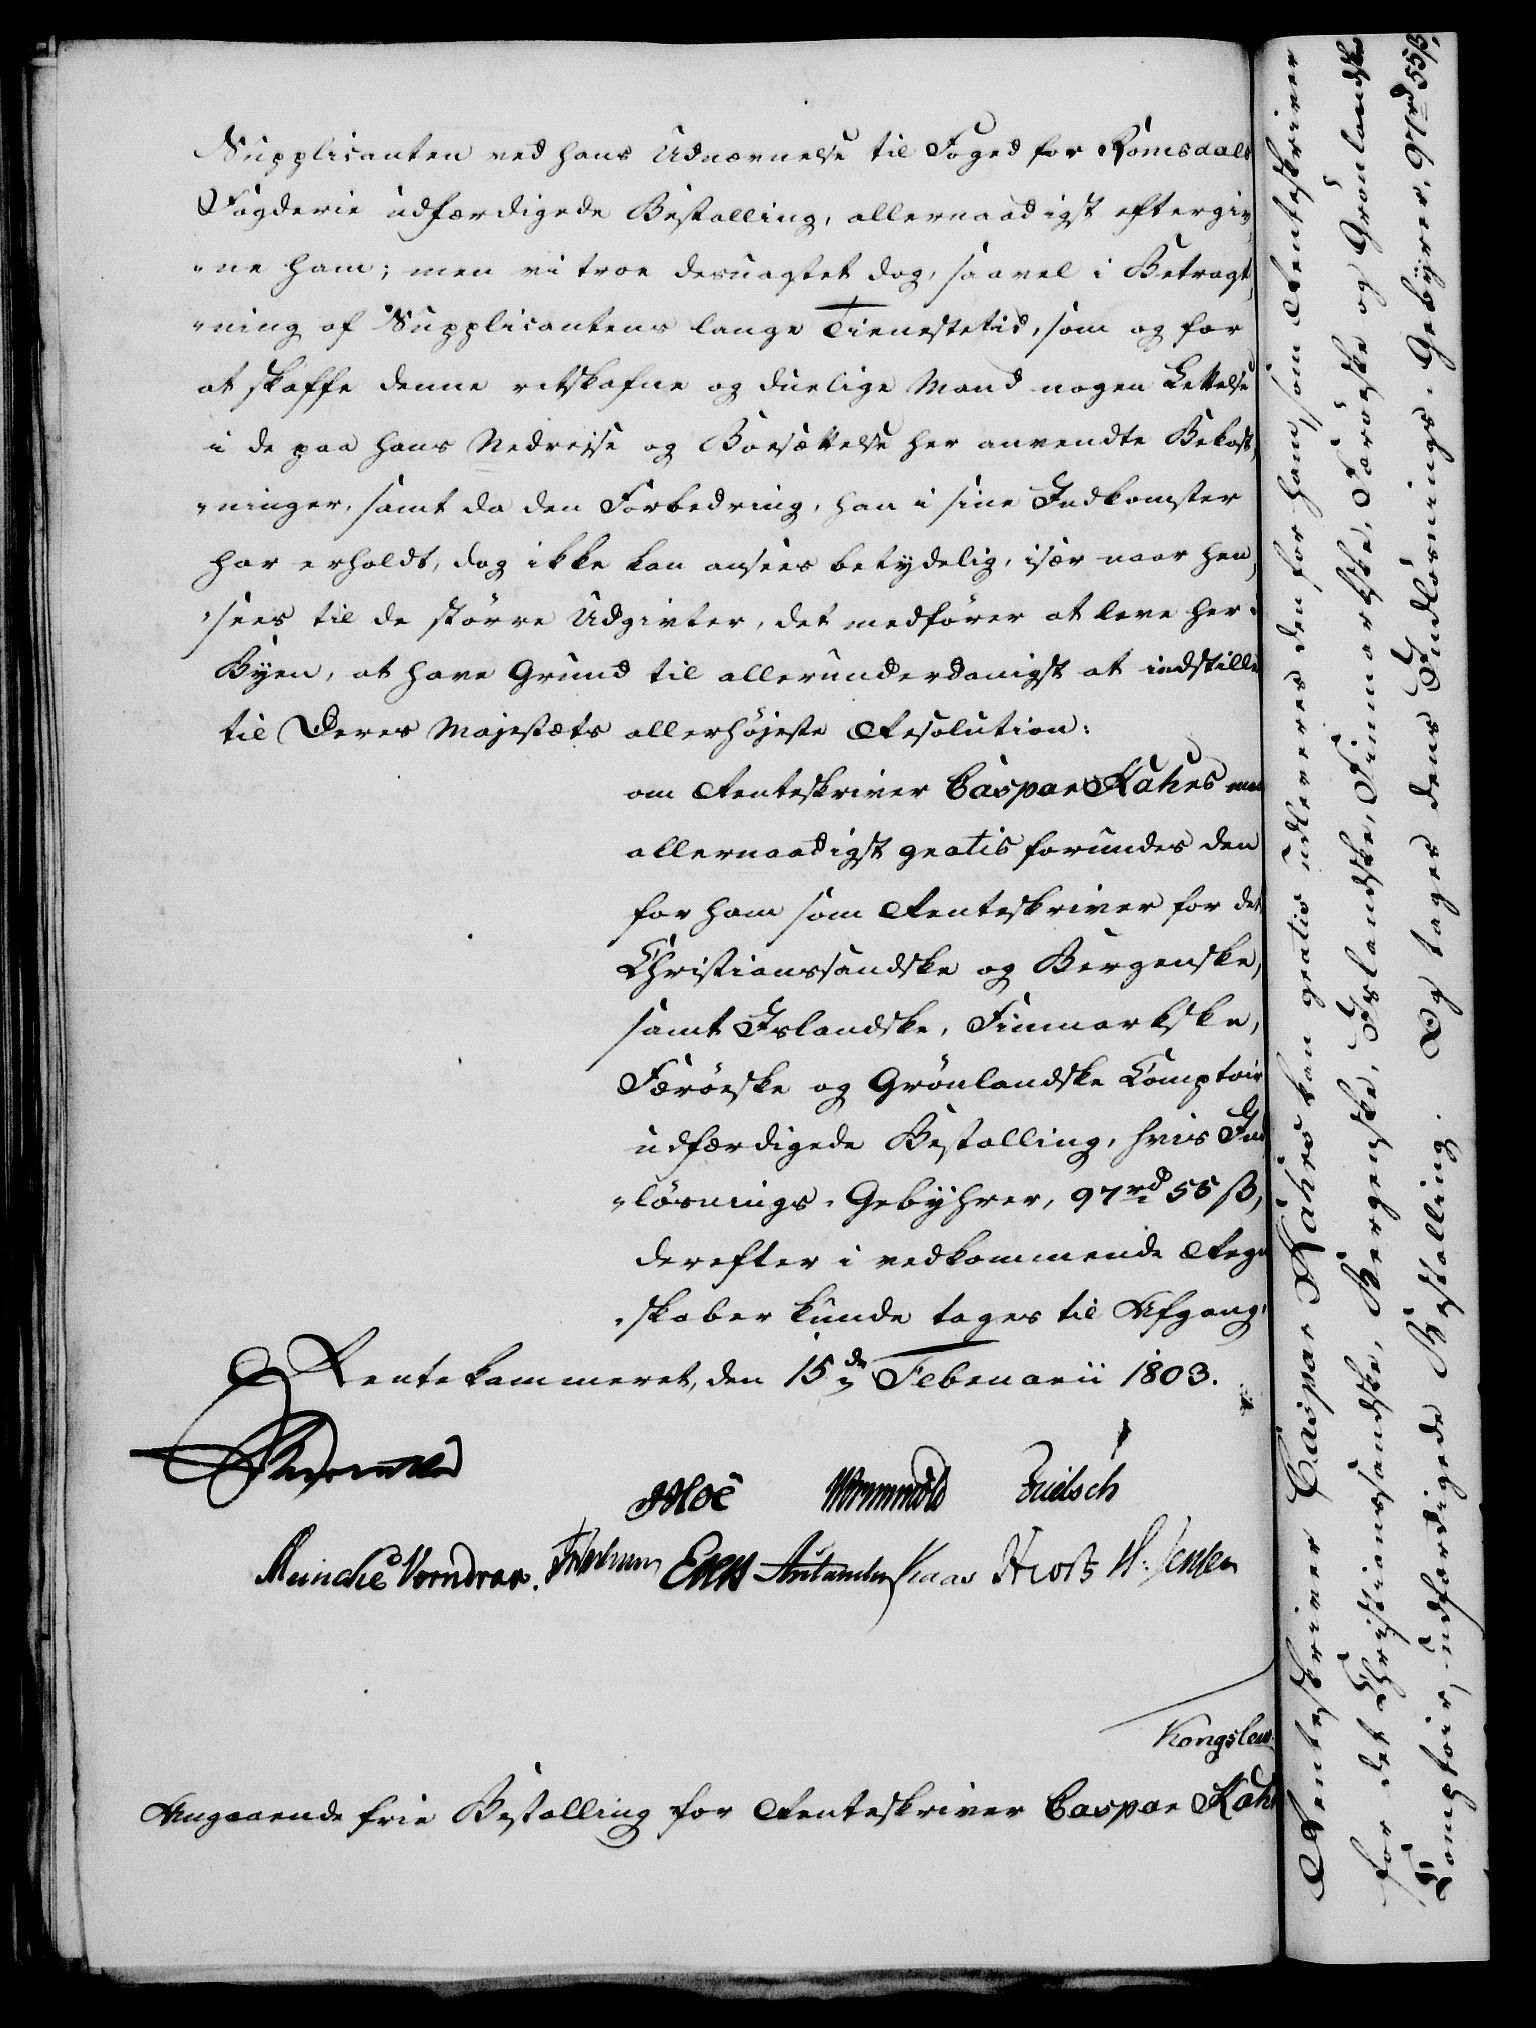 Supplicanten ved hans Udnævnelse til Foged for Romsdals
Fogderie udfærdigede Bestalling, allernaadigst eftergiv„
„ne ham; men vi troe desuagtet dog, saavel i Betragt„
„ning af Supplicantens lange Tienestetid, som og for
at skaffe denne retskafne og duelige Mand nogen Lettelse
i de paa hans Nedreise og Boesættelse her anvendte Bekost„
„ninger, samt da den Forbedring, han i sine Indkomster
har erholdt, dog ikke kan ansees betydelig, især naar hen„
„sees til de større Udgivter, det medfører at leve her i
Byen, at have Grund til allerunderdanigst at indstille
til Deres Majestæts allerhøjeste Resolution:
om Renteskriver Caspar Kahrs maa
allernaadigst gratis forundes den
for ham som Renteskriver for det
Christianssandske og Bergenske,
samt Islandske, Finmarkske,
Færøeske og Grønlandske Comptoir
udfærdigede Bestalling, hvis Ind
„løsnings-Gebyhrer, 97rd 55 ß,
derefter i vedkommende Regn
„skaber kunde tages til Afgang.
Rentekammeret, den 15de Februarii 1803.
Hoë Wormskiold Frielsch
Meinche Vorndran. Evers Klaas H. Jensen
Kongslew
Angaaende frie Bestalling for Renteskriver Caspar Kahr
Renteskriver Caspar Kahrs kan gratis udleveres den for ham, som Renteskriver
for det Christianssandske, Bergenske, Islandske, Finmarkske, Færøeske og Grønlandske
Comptoir, udfærdigede Bestalling. Og tages dens Indløsnings-Gebyrer, 97rd 55ß,